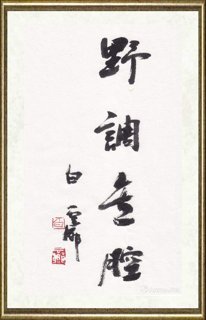 野調無腔
白雪梅